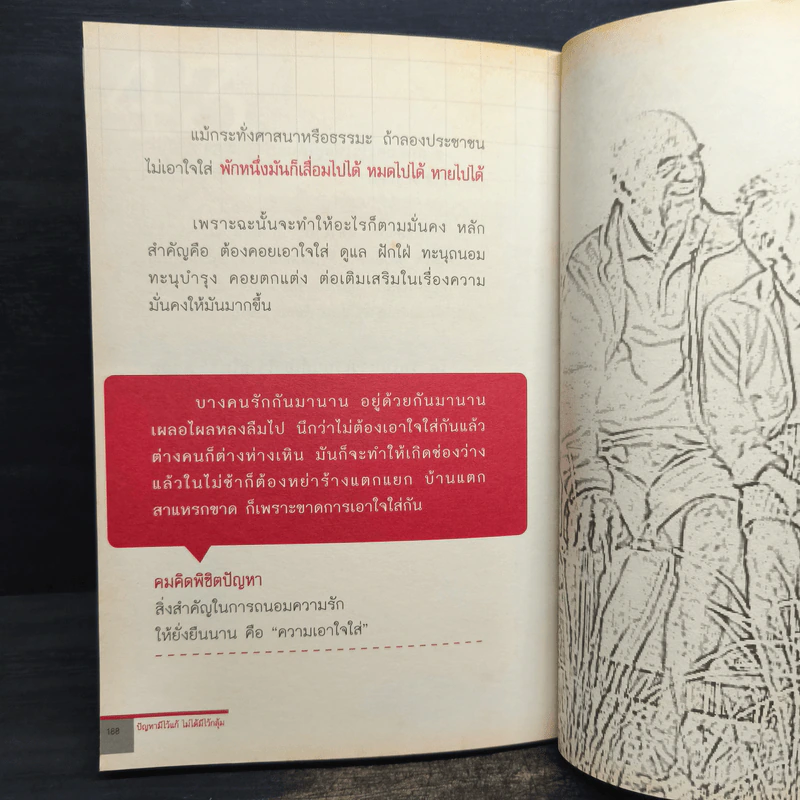 แม้กระทั่งศาสนาหรือธรรมะ ถ้าลองประชาชน
ไม่เอาใจใส่ พักหนึ่งมันก็เสื่อมไปได้ หมดไปได้ หายไปได้
เพราะฉะนั้นจะทำให้อะไรก็ตามมั่นคง หลัก
สำคัญคือ ต้องคอยเอาใจใส่ ดูแล ฝักใฝ่ ทะนุถนอม
ทะนุบำรุง คอยตกแต่ง ต่อเติมเสริมในเรื่องความ
มั่นคงให้มันมากขึ้น
บางคนรักกันมานาน อยู่ด้วยกันมานาน
เผลอไผลหลงลืมไป นึกว่าไม่ต้องเอาใจใส่กันแล้ว
ต่างคนก็ต่างห่างเหิน มันก็จะทำให้เกิดช่องว่าง
แล้วในไม่ช้าก็ต้องหย่าร้างแตกแยก บ้านแตก
สาแหรกขาด ก็เพราะขาดการเอาใจใส่กัน
คมคิดพิชิตปัญหา
สิ่งสำคัญในการถนอมความรัก
ให้ยั่งยืนนาน คือ “ความเอาใจใส่”
168 ปัญหามีไว้แก้ ไม่ได้มีไว้กลุ้ม